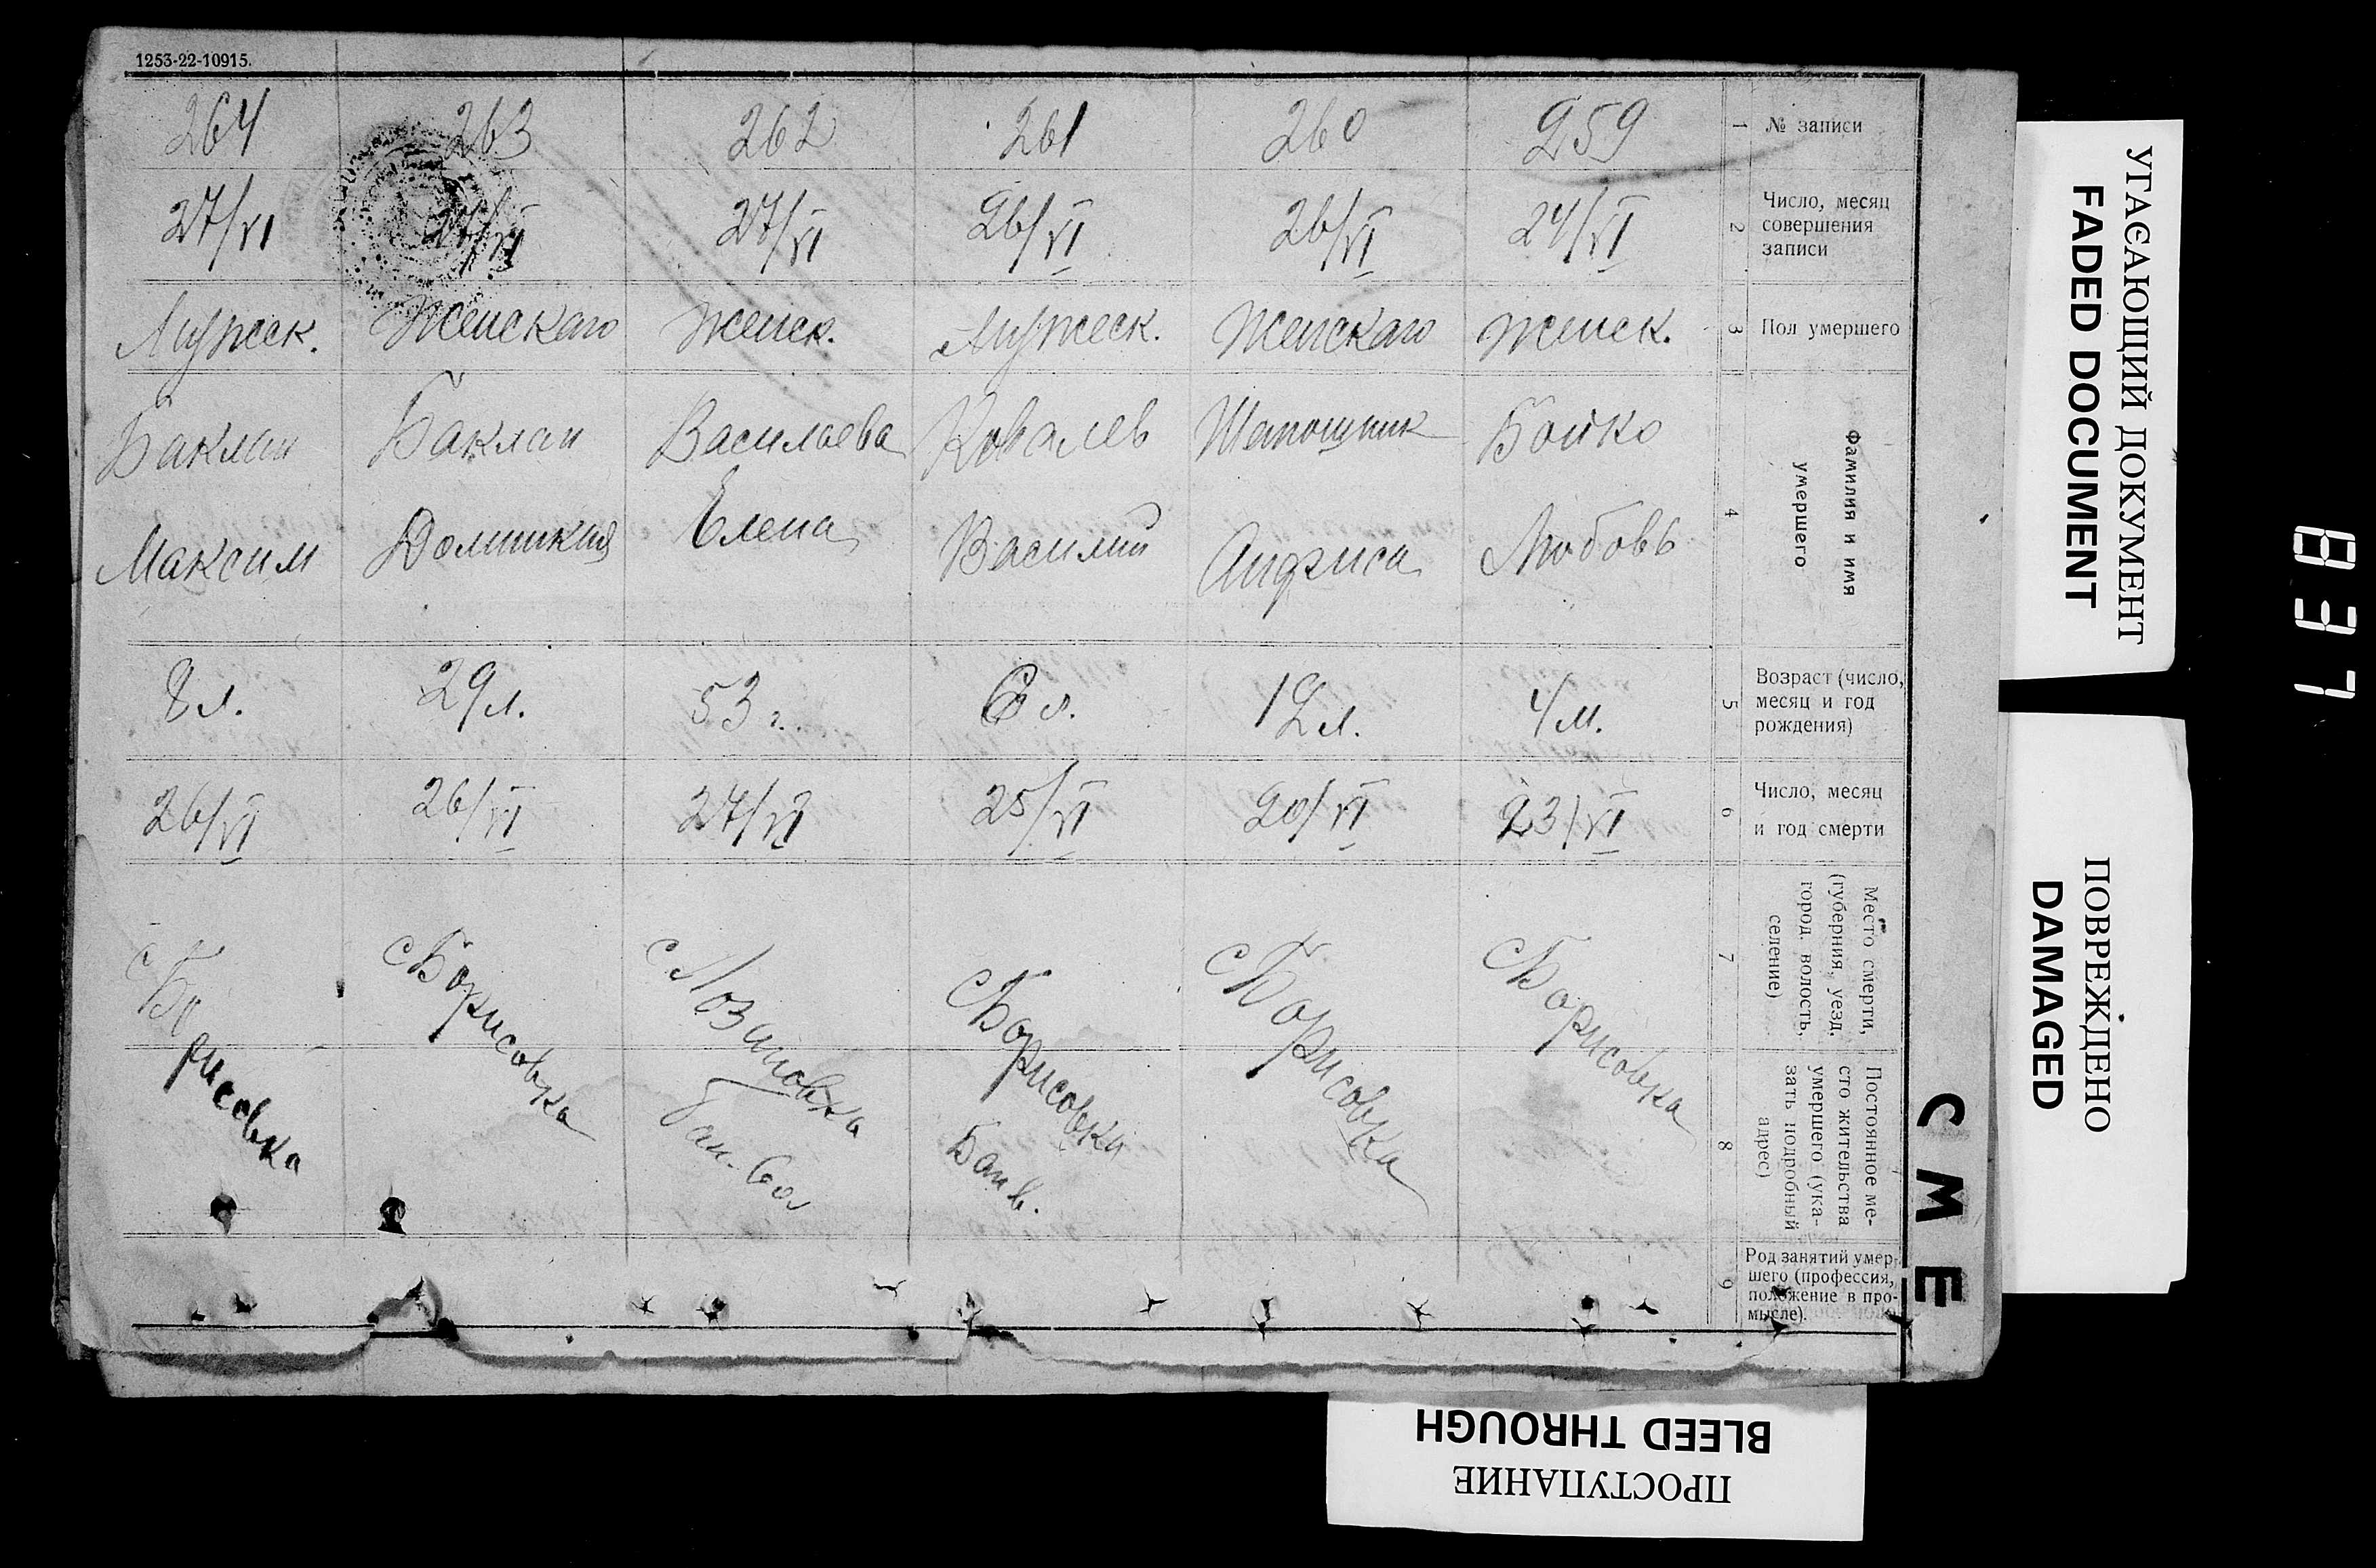 1253-22-10915.
264 263 262 261 260 259 1 № записи
27/VI 27/VI 27/VI 26/VI 26/VI 24/VI 2 Число, месяц
совершения
записи
Мужеск. Женскаго Женск. Мужеск. Женскаго Женск. 3 Пол умершего
Баклан Баклан Васильева Ковалев Бойко 4 Фамилия и имя
умершего
Максим Домникия Елена Василий Анфиса Любовь
8 л. 29 л. 53 г. 6 л. 12 л. 4 м. 5 Возраст (число,
месяц и год
рождения)
26/VI 26/VI 27/VI 25/VI 20/VI 23/VI 6 Число, месяц
и год смерти
с Борисовка с Борисовка с Лозановка с Борисовка с Борисовка с Борисовка 7 Место смерти,
(губерния, уезд,
город. волость,
селение)
Бат. вол Бат в. 8 Постоянное ме-
сто жительства
умершего (ука-
зать подробный
адрес)
9 Род занятий умер-
шего (профессия,
положение в про-
мысле).
СМЕ
УГАСАЮЩИЙ ДОКУМЕНТ
FADED DOCUMENT
ПОВРЕЖДЕНО
DAMAGED
BLEED THROUGH
ПРОСТУПАНИЕ
837